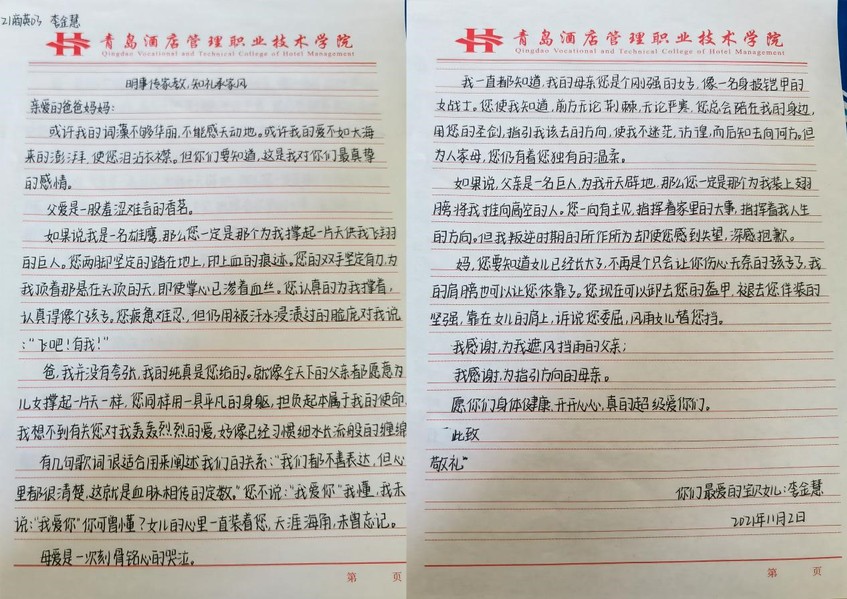 21商英03 李金慧
青岛酒店管理职业技术学院
Qingdao Vocational and Technical College of Hotel Management
明事传家教,知礼承家风
亲爱的爸爸妈妈:
或许我的词藻不够华丽,不能感天动地。或许我的爱不如大海
来的澎湃,使您泪沾衣襟。但你们要知道,这是我对你们最真挚
的感情。
父爱是一股羞涩难言的香茗。
如果说我是一名雄鹰,那么您一定是那个为我撑起一片天供我飞翔
的巨人。您两脚坚定的踏在地上,印上血的痕迹。您的双手坚定有力,为
我顶着那悬在头顶的天,即使掌心已渗着血丝。您认真的为我撑着,
认真得像个孩子。您疲惫难忍,但仍用被汗水浸渍过的脸庞对我说
:“飞吧!有我!”
爸,我并没有夸张,我的纯真是您给的。就像全天下的父亲都愿意为
儿女撑起一片天一样,您同样用一具平凡的身躯,担负起本属于我的使命,
我想不到有关您对我轰轰烈烈的爱,好像已经习惯细水长流般的缠绵
有几句歌词很适合用来阐述我们的关系:“我们都不善表达,但心
里都很清楚,这就是血脉相传的定数。”您不说:“我爱你”我懂,我未
说:“我爱你”你可曾懂?女儿的心里一直装着您,天涯海角,未曾忘记。
母爱是一次刻骨铭心的哭泣。
第 页
青岛酒店管理职业技术学院
Qingdao Vocational and Technical College of Hotel Management
我一直都知道,我的母亲您是个刚强的女子,像一名身披铠甲的
女战士。您使我知道,前方无论荆棘,无论严寒,您总会陪在我的身边,
用您的圣剑,指引我该去的方向,使我不迷茫,彷徨,而后知去向何方。但
为人家母,您仍有着您独有的温柔。
如果说,父亲是一名巨人,为我开天辟地,那么您一定是那个为我装上翅
膀将我推向高空的人。您一向有主见,指挥着家里的大事,指挥着我人生
的方向。但我叛逆时期的所作所为却使您感到失望,深感抱歉。
妈,您要知道女儿已经长大了,不再是个只会让你伤心无奈的孩子了,我
的肩膀也可以让您依靠了。您现在可以卸去您的盔甲,褪去您佯装的
坚强,靠在女儿的肩上,诉说您委屈,风雨女儿替您挡。
我感谢,为我遮风挡雨的父亲;
我感谢,为指引方向的母亲。
愿你们身体健康,开开心心,真的超级爱你们。
“此致
敬礼”
你们最爱的宝贝女儿:李金慧
2021年11月2日
第 页